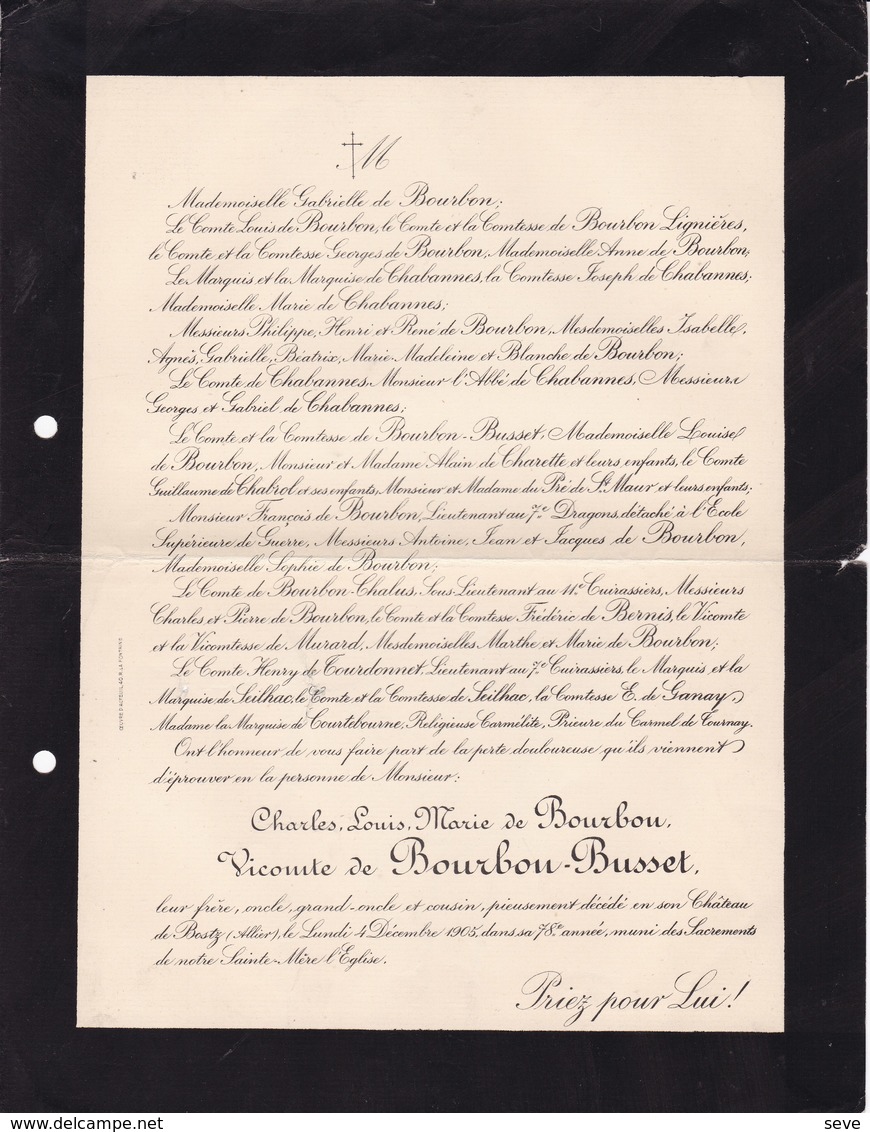 M
Mademoiselle Gabrielle de Bourbon;
Le Comte Louis de Bourbon, le Comte et la Comtesse de Bourbon Lignières,
le Comte et la Comtesse Georges de Bourbon, Mademoiselle Anne de Bourbon;
Le Marquis et la Marquise de Chabannes, la Comtesse Joseph de Chabannes;
Mademoiselle Marie de Chabannes;
Messieurs Philippe, Henri et René de Bourbon, Mesdemoiselles Isabelle,
Agnès, Gabrielle, Béatrix, Marie-Madeleine et Blanche de Bourbon;
Le Comte de Chabannes, Monsieur l'Abbé de Chabannes, Messieurs
Georges et Gabriel de Chabannes;
Le Comte et la Comtesse de Bourbon-Busset, Mademoiselle Louise
de Bourbon, Monsieur et Madame Alain de Charette et leurs enfants, le Comte
Guillaume de Chabrol et ses enfants, Monsieur et Madame du Pré de St Maur et leurs enfants;
Monsieur François de Bourbon, Lieutenant au 7e Dragons, détaché à l'Ecole
Supérieure de Guerre, Messieurs Antoine, Jean et Jacques de Bourbon,
Mademoiselle Sophie de Bourbon;
Le Comte de Bourbon-Chalus, Sous-Lieutenant au 11e Cuirassiers, Messieurs
Charles et Pierre de Bourbon, le Comte et la Comtesse Frédéric de Bernis, le Vicomte
et la Vicomtesse de Murard, Mesdemoiselles Marthe et Marie de Bourbon;
Le Comte Henry de Tourdonnet, Lieutenant au 7e Cuirassiers, le Marquis et la
Marquise de Seilhac, le Comte et la Comtesse de Seilhac, la Comtesse E. de Ganay,
Madame la Marquise de Courtebourne, Religieuse Carmélite, Prieure du Carmel de Tournay.
Ont l'honneur de vous faire part de la perte douloureuse qu'ils viennent
d'éprouver en la personne de Monsieur:
Charles, Louis, Marie de Bourbon,
Vicomte de Bourbon-Busset,
leur frère, oncle, grand-oncle et cousin, pieusement décédé en son Château
de Bostz (Allier), le Lundi 4 Décembre 1905, dans sa 78e année, muni des Sacrements
de notre Sainte-Mère l'Eglise.
Priez pour Lui!
ŒUVRE D'AUTEUIL, 40, R. LA FONTAINE
delcampe.net
seve